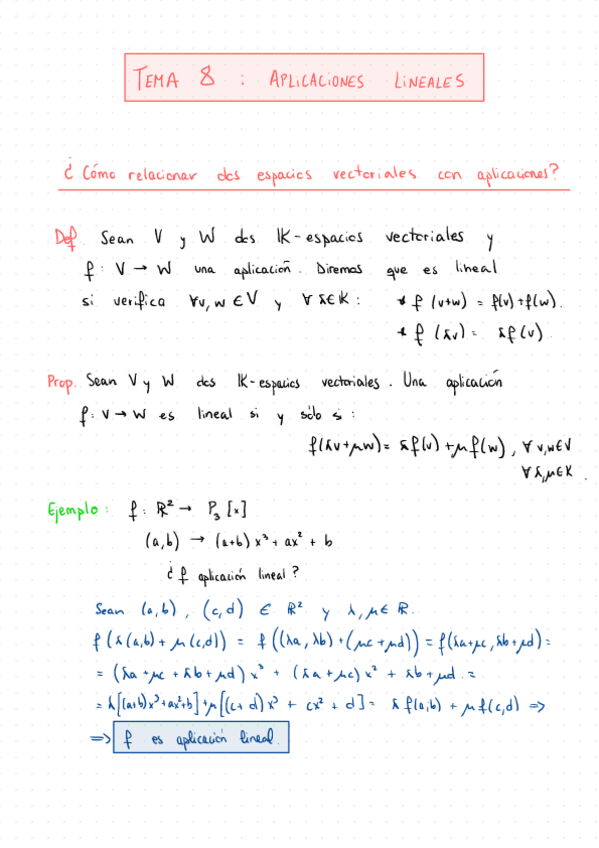 TEMA 8 : APLICACIONES LINEALES
¿ Cómo relacionar dos espacios vectoriales con aplicaciones?
Def. Sean V y W dos IK-espacios vectoriales y
f: V → W una aplicación. Diremos que es lineal
si verifica ∀v, w ∈ V y ∀ λ ∈ IK : * f (v+w) = f(v)+f(w).
* f (λv) = λf(v).
Prop. Sean V y W dos IK-espacios vectoriales. Una aplicación
f: V → W es lineal si y sólo si:
f(λv+μw) = λf(v)+μf(w), ∀ v,w∈V
∀ λ,μ∈K.
Ejemplo: f: ℝ² → P₃ [x]
(a,b) → (a+b) x³ + ax² + b
¿ f aplicación lineal ?
Sean (a,b), (c,d) ∈ ℝ² y λ, μ ∈ ℝ.
f (λ(a,b) + μ(c,d)) = f ((λa, λb) + (μc + μd)) = f(λa+μc, λb+μd) =
= (λa + μc + λb + μd) x³ + (λa + μc) x² + λb + μd. =
= λ[(a+b)x³+ax²+b] + μ[(c+d)x³ + cx² + d] = λ f(a,b) + μ f(c,d) =>
=> f es aplicación lineal.